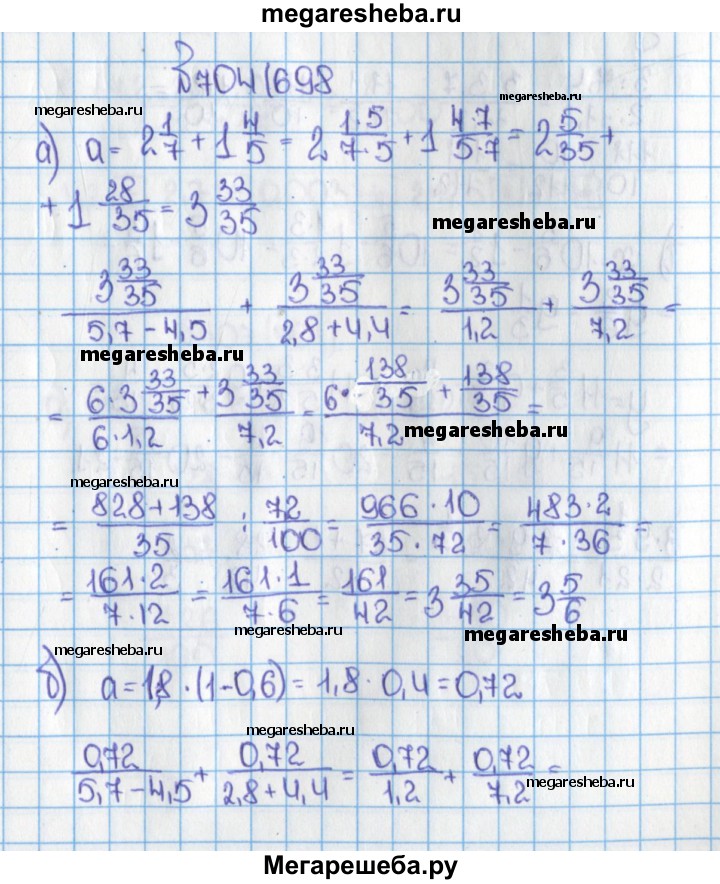 megaresheba.ru
№704(698
megaresheba.ru
megaresheba.ru
а) a = 2 1/7 + 1 4/5 = 2 1·5/7·5 + 1 4·7/5·7 = 2 5/35 +
+ 1 28/35 = 3 33/35
megaresheba.ru
3 33/35 / 5,7-4,5 + 3 33/35 / 2,8+4,4 = 3 33/35 / 1,2 + 3 33/35 / 7,2 =
megaresheba.ru
= 6·3 33/35 / 6·1,2 + 3 33/35 / 7,2 = 6· 138/35 + 138/35 / 7,2 =
megaresheba.ru
megaresheba.ru
= 828+138/35 : 72/100 = 966·10/35·72 = 483·2/7·36 =
= 161·2/7·12 = 161·1/7·6 = 161/42 = 3 35/42 = 3 5/6
megaresheba.ru
megaresheba.ru
megaresheba.ru
б) a = 1,8·(1-0,6) = 1,8·0,4 = 0,72
megaresheba.ru
0,72/5,7-4,5 + 0,72/2,8+4,4 = 0,72/1,2 + 0,72/7,2 =
megaresheba.ru
Мегарешеба.ру